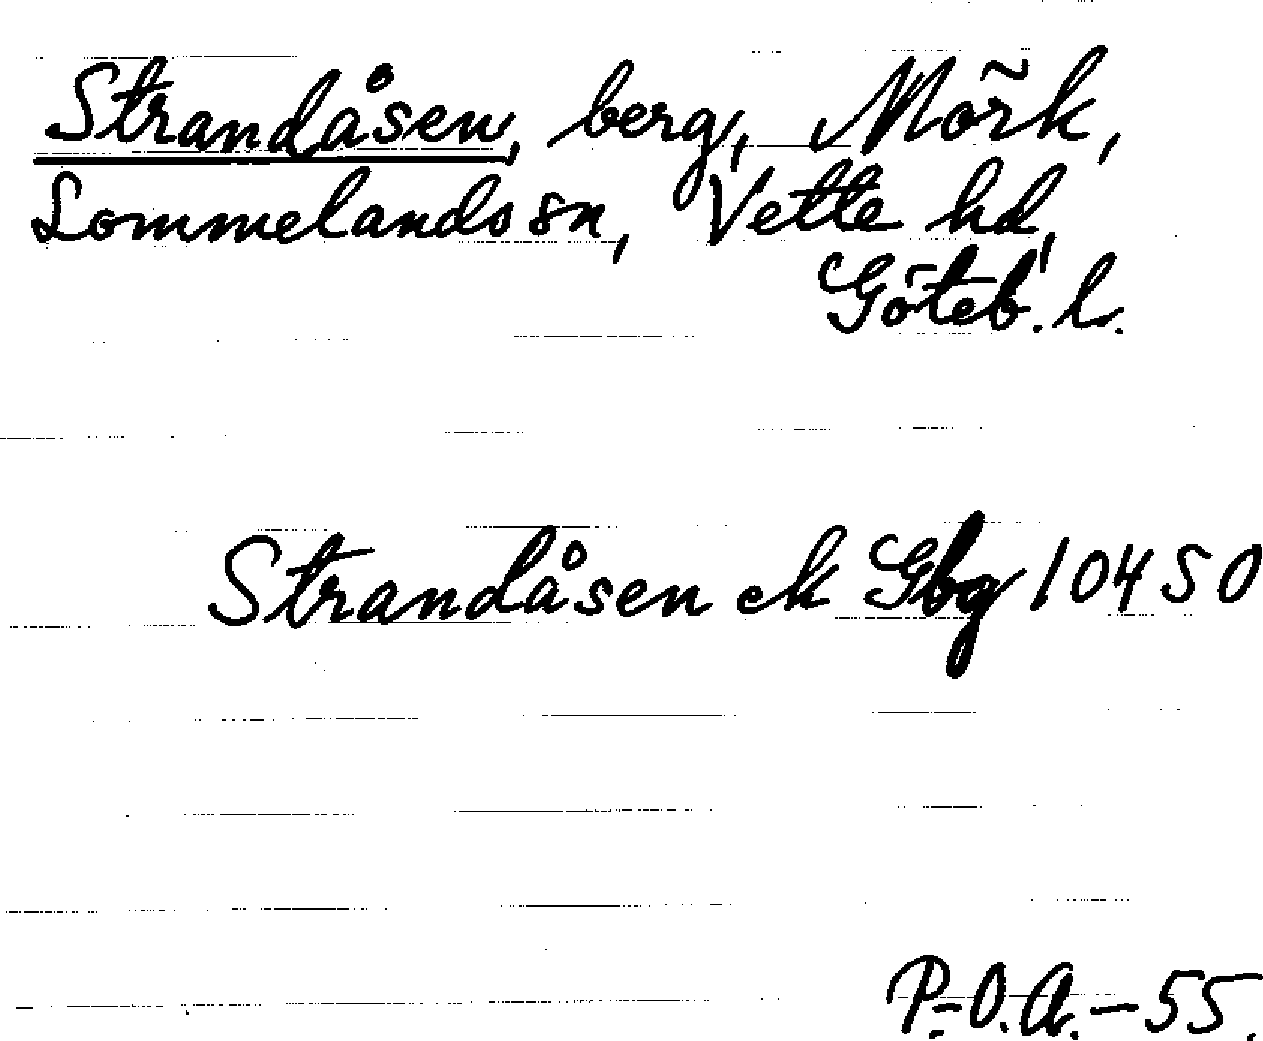 Strandåsen, berg, Mörk,
Lommelands sn, Vette hd,
Göteb. l.
Strandåsen ek Gbg 10450
P.-O.A. - 55.